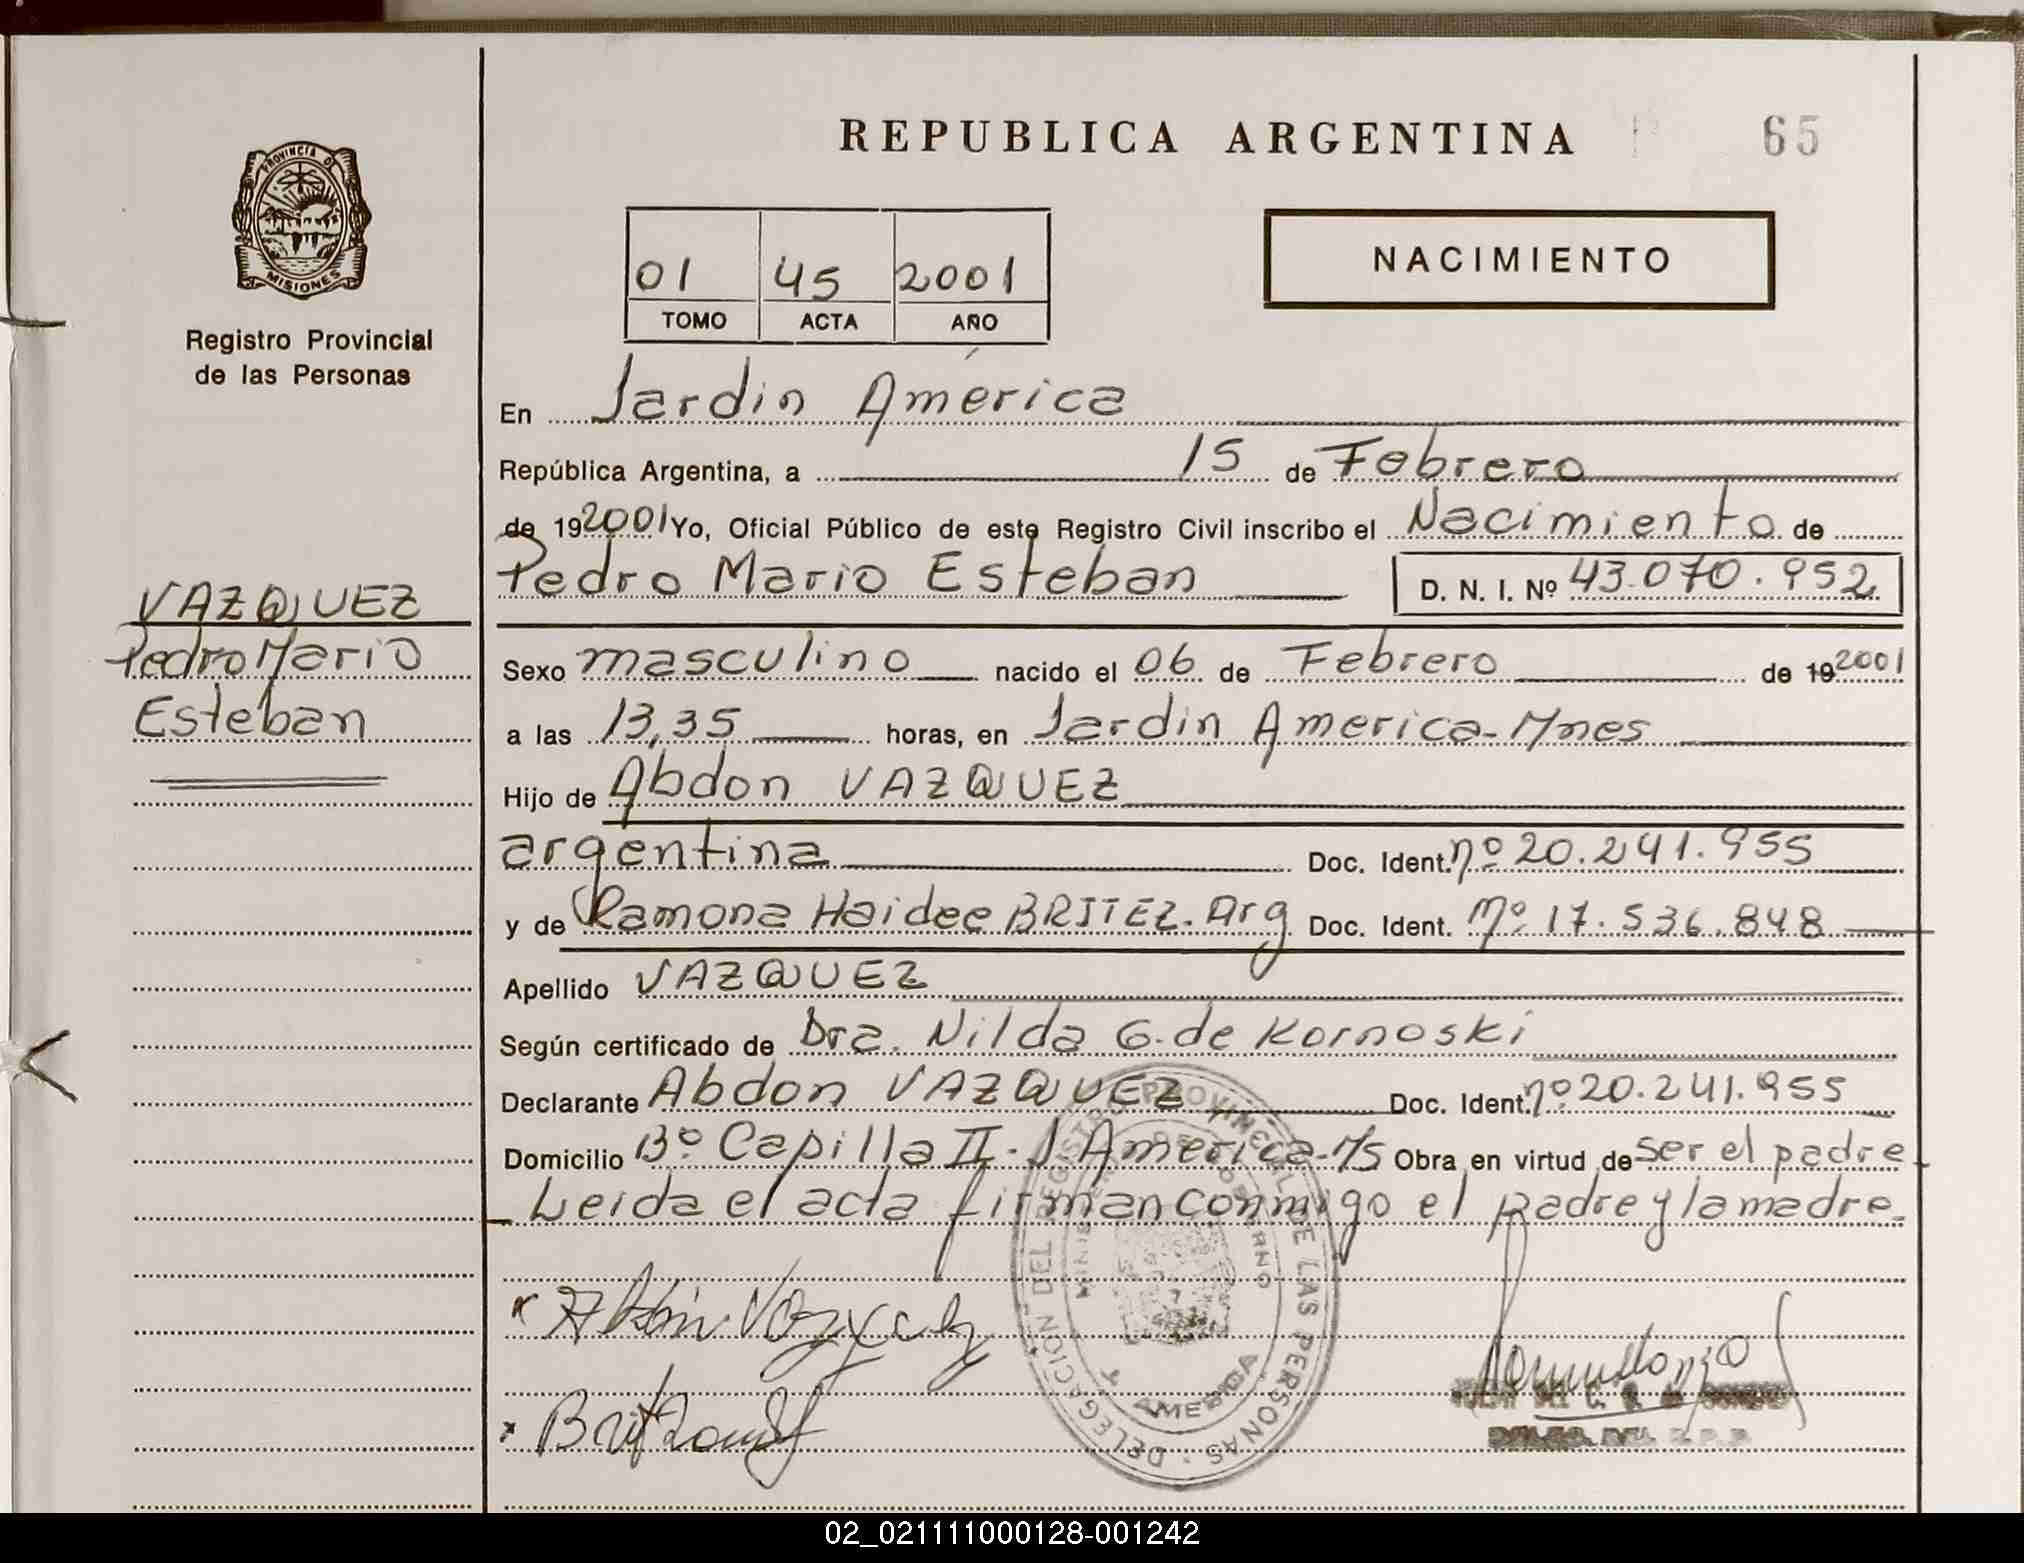 REPUBLICA ARGENTINA
65
PROVINCIA DE
MISIONES
Registro Provincial
de las Personas
NACIMIENTO
01 45 2001
TOMO ACTA AÑO
En Jardin América
República Argentina, a 15 de Febrero
de 192001 Yo, Oficial Público de este Registro Civil inscribo el Nacimiento de
Pedro Mario Esteban D. N. I. Nº 43.070.952
VAZQUEZ
Pedro Mario
Esteban
Sexo masculino nacido el 06 de Febrero de 192001
a las 13,35 horas, en Jardin America-Mnes
Hijo de Abdon VAZQUEZ
argentina Doc. Ident. nº 20.241.955
y de Ramona Haidee BRITEZ. Arg Doc. Ident. nº 17.536.848
Apellido VAZQUEZ
Según certificado de Dra. Nilda G. de Kornoski
Declarante Abdon VAZQUEZ Doc. Ident. nº 20.241.955
Domicilio Bº Capilla II. J. America-M/S Obra en virtud de ser el padre
Leida el acta firman conmigo el padre y la madre.
DELEGACION DEL REGISTRO PROVINCIAL DE LAS PERSONAS
AMERICA
02_021111000128-001242